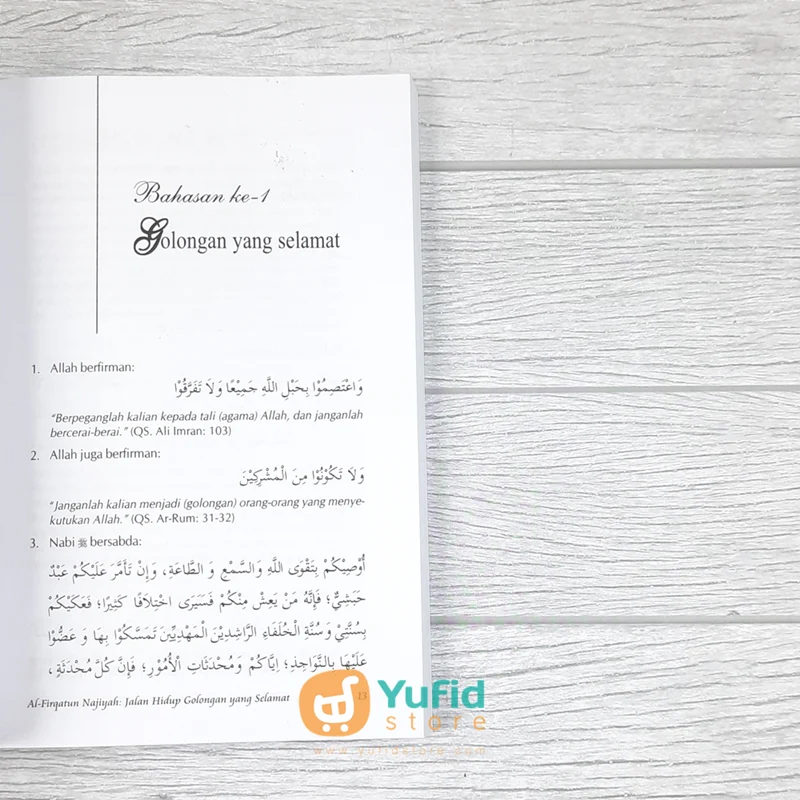 Bahasan ke-1
Golongan yang selamat
1. Allah berfirman:
وَاعْتَصِمُوْا بِحَبْلِ اللَّهِ جَمِيْعًا وَلَا تَفَرَّقُوْا
“Berpeganglah kalian kepada tali (agama) Allah, dan janganlah
bercerai-berai.” (QS. Ali Imran: 103)
2. Allah juga berfirman:
وَلَا تَكُوْنُوْا مِنَ الْمُشْرِكِيْنَ
“Janganlah kalian menjadi (golongan) orang-orang yang menye-
kutukan Allah.” (QS. Ar-Rum: 31-32)
3. Nabi ﷺ bersabda:
أُوْصِيْكُمْ بِتَقْوَى اللَّهِ وَالسَّمْعِ وَ الطَّاعَةِ، وَإِنْ تَأَمَّرَ عَلَيْكُمْ عَبْدٌ
حَبَشِيٌّ؛ فَإِنَّهُ مَنْ يَعِشْ مِنْكُمْ فَسَيَرَى اخْتِلَافًا كَثِيْرًا؛ فَعَلَيْكُمْ
بِسُنَّتِيْ وَ سُنَّةِ الْخُلَفَاءِ الرَّاشِدِيْنَ الْمَهْدِيِّيْنَ تَمَسَّكُوْا بِهَا وَ عَضُّوْا
عَلَيْهَا بِالنَّوَاجِذِ؛ إِيَّاكُمْ وَمُحْدَثَاتِ الْأُمُوْرِ؛ فَإِنَّ كُلَّ مُحْدَثَةٍ،
Al-Firqatun Najiyah: Jalan Hidup Golongan yang Selamat 13
Yufid
store
www.yufidstore.com